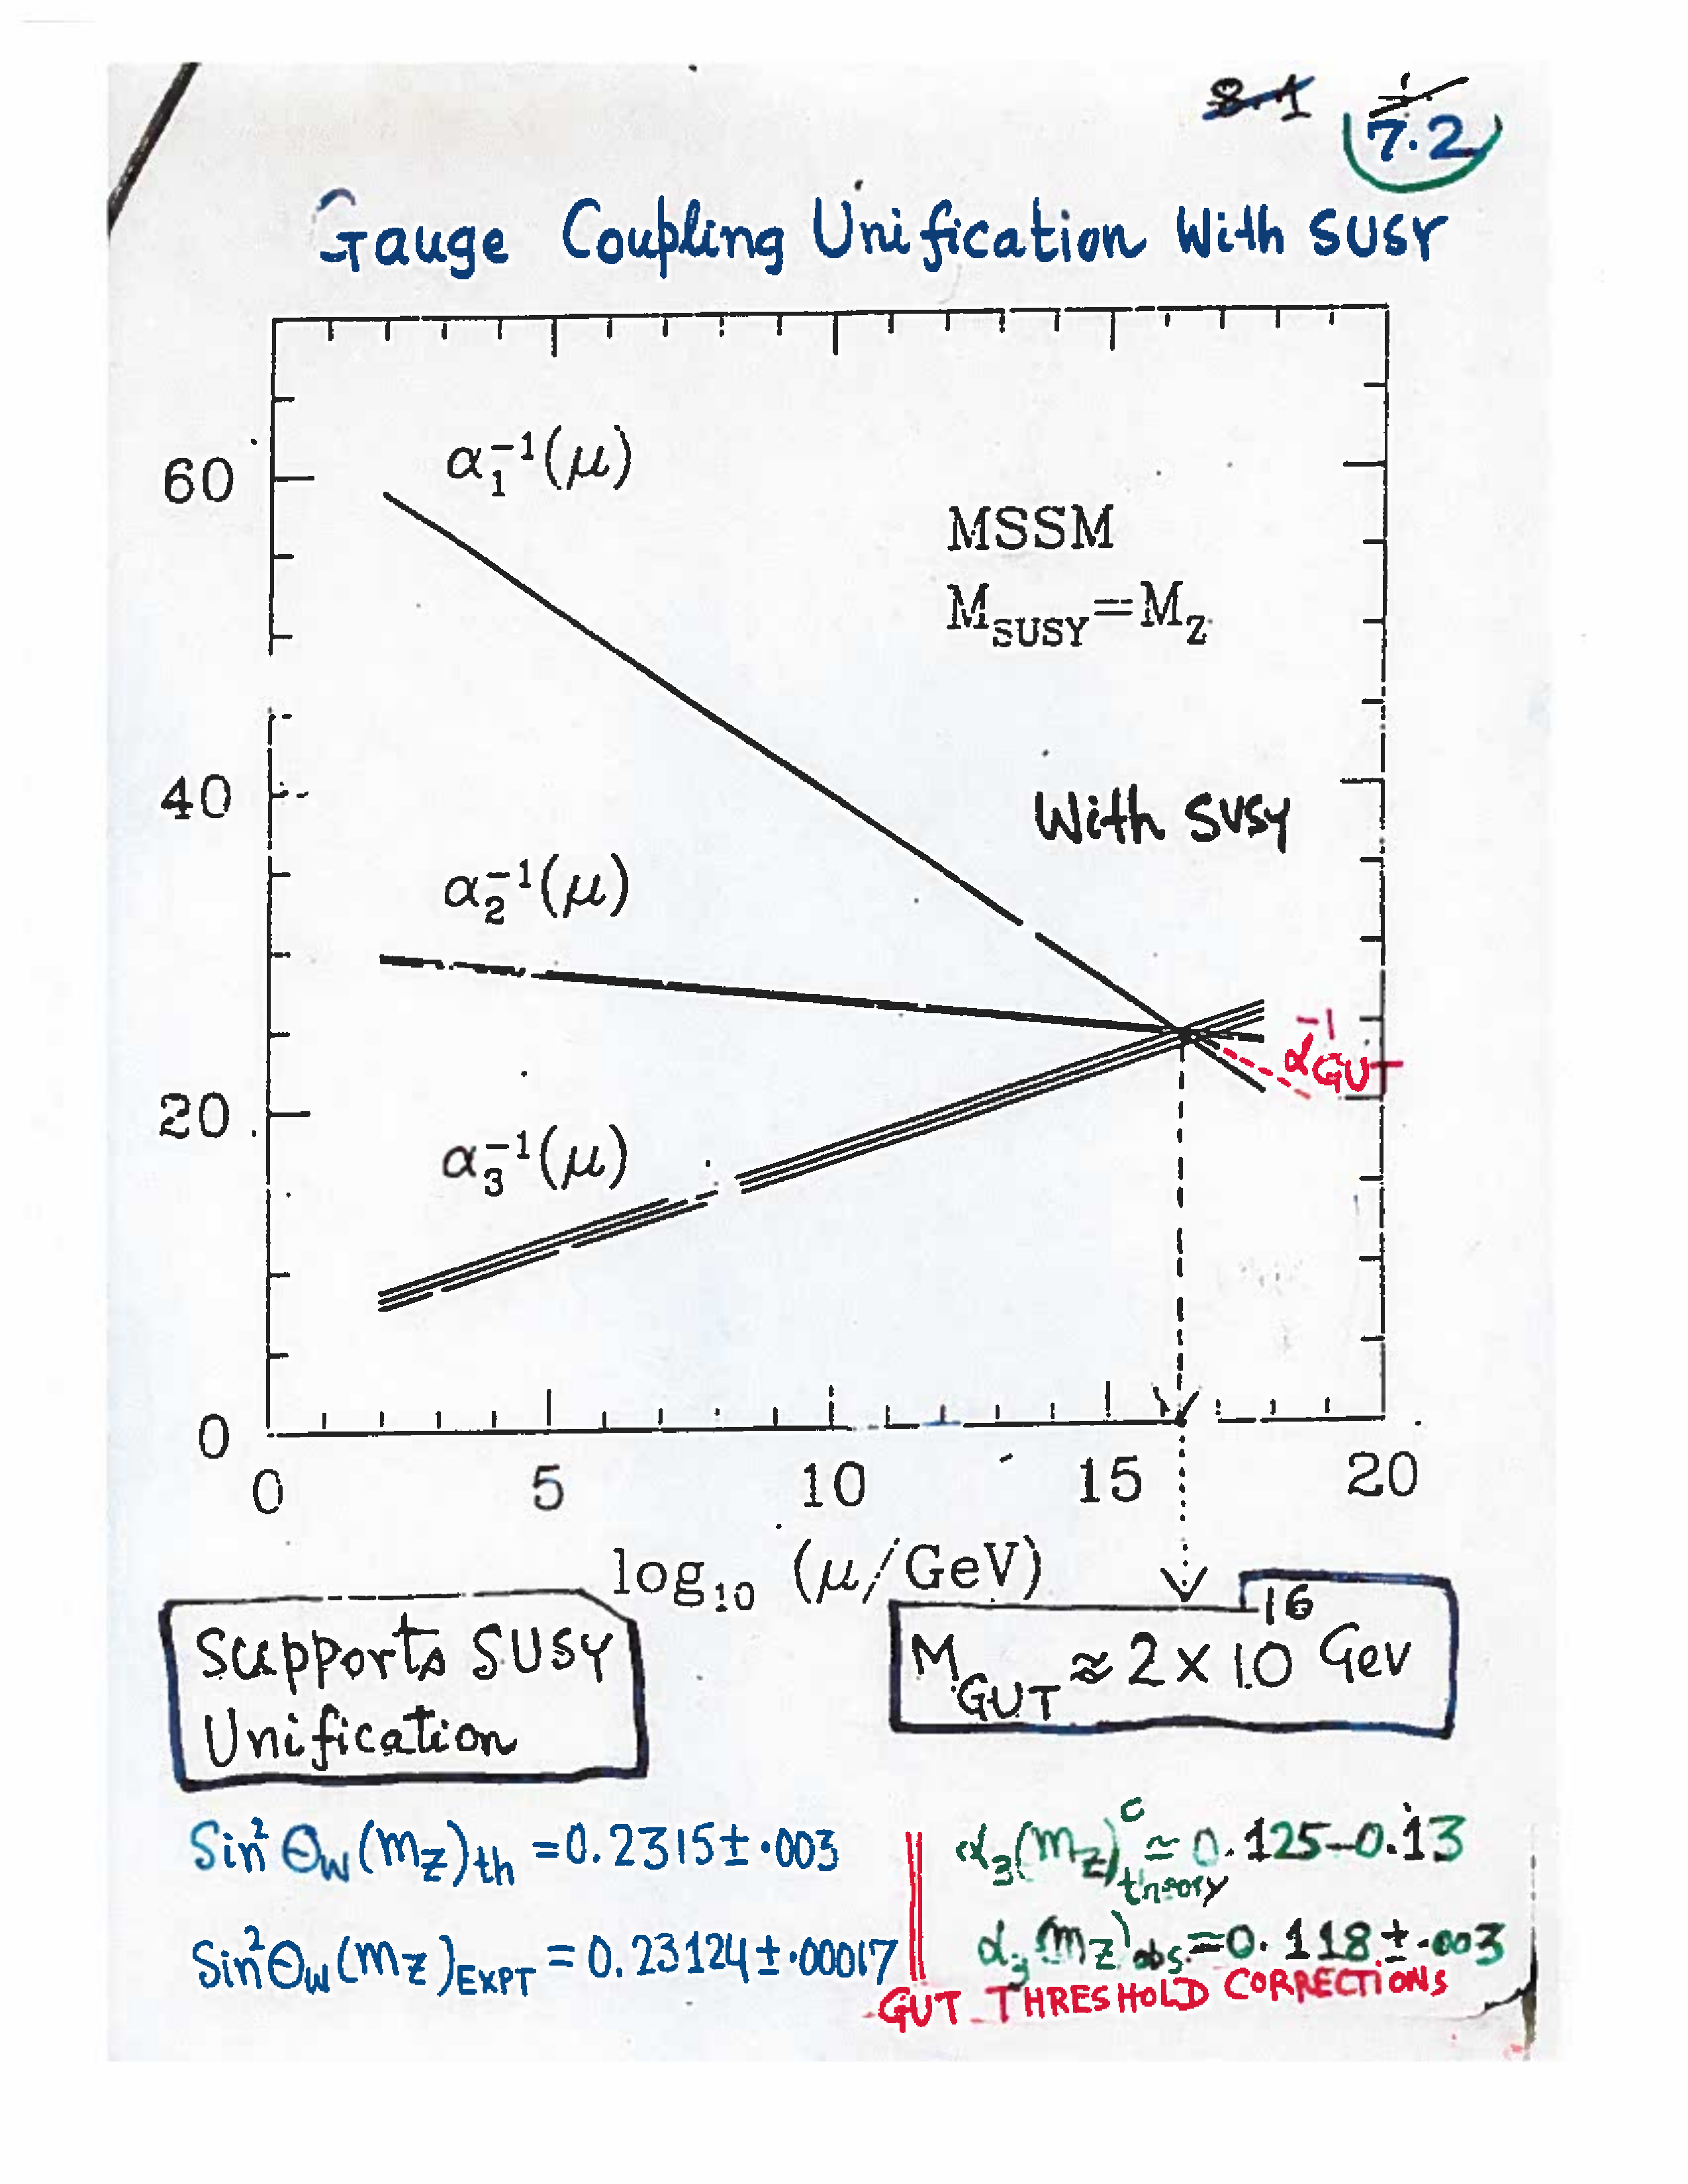 8.1
7.2
Gauge Coupling Unification With SUSY
60
α₁⁻¹(μ)
MSSM
M_SUSY=M_Z
40
With SUSY
α₂⁻¹(μ)
α⁻¹_GUT
20
α₃⁻¹(μ)
0
0 5 10 15 20
log₁₀ (μ/GeV)
Supports SUSY
Unification
M_GUT ≈ 2 × 10¹⁶ GeV
Sin²θ_W(m_Z)_th = 0.2315±.003
α₃(m_Z)^C_theory ≃ 0.125–0.13
Sin²θ_W(m_Z)_EXPT = 0.23124±.00017
α₃(m_Z)_obs. = 0.118±.003
GUT THRESHOLD CORRECTIONS